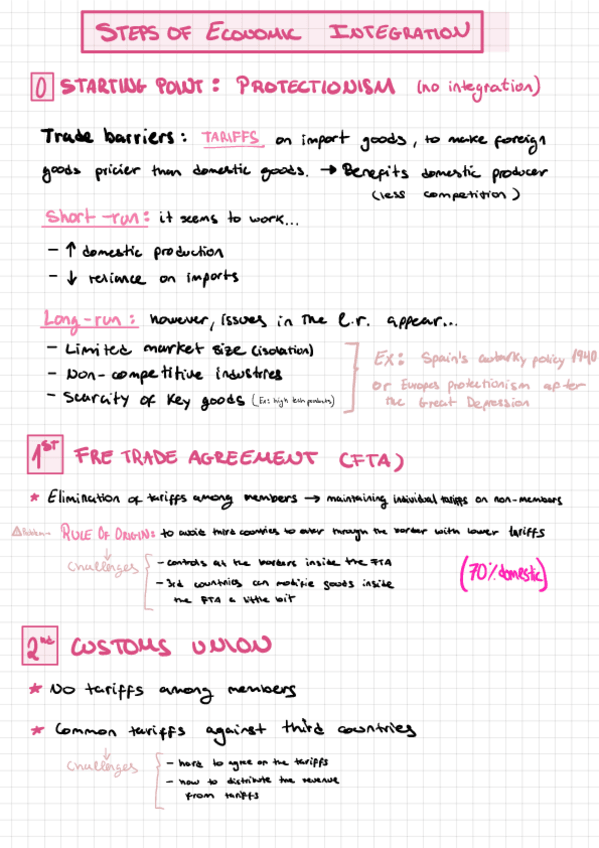 STEPS OF ECONOMIC INTEGRATION
0 STARTING POINT: PROTECTIONISM (no integration)
Trade barriers: TARIFFS on import goods, to make foreign
goods pricier than domestic goods. → Benefits domestic producer
(less competition)
Short-run: it seems to work...
- ↑ domestic production
- ↓ reliance on imports
Long-run: however, issues in the l.r. appear...
- Limited market size (isolation)
- Non-competitive industries
- Scarcity of key goods (Ex: high tech products)
Ex: Spain's autarky policy 1940
or Europes protectionism after
the Great Depression
1ST FRE TRADE AGREEMENT (FTA)
* Elimination of tariffs among members → maintaining individual tariffs on non-members
⚠ Problem → RULE OF ORIGIN: to avoid third countries to enter through the border with lower tariffs
↓
Challenges
- controls at the borders inside the FTA
- 3rd countries can modifie goods inside
the FTA a little bit
(70% domestic)
2nd CUSTOMS UNION
* No tariffs among members
* Common tariffs against third countries
↓
Challenges
- hard to agree on the tariffs
- how to distribute the revenue
from tariffs